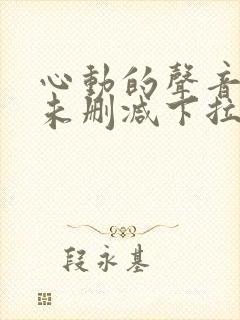 心動的聲音
未刪減下拉
段永基